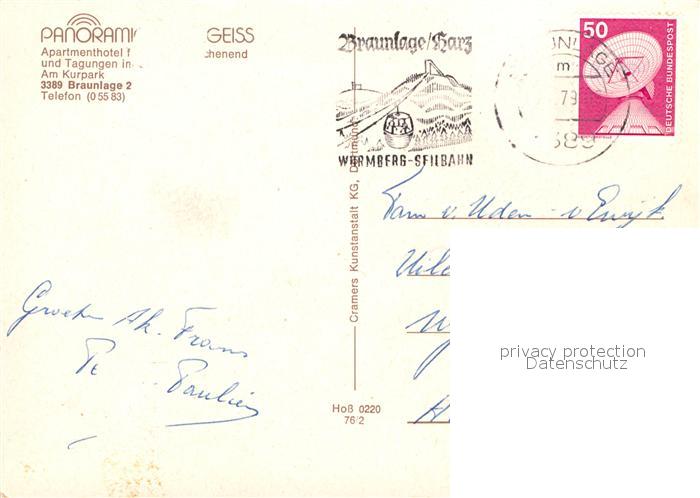 PANORAMI GEISS
Apartmenthotel chenend
und Tagungen in
Am Kurpark
3389 Braunlage 2
Telefon (0 55 83)
Braunlage/Harz
WURMBERG-SEILBAHN
50
DEUTSCHE BUNDESPOST
m
79
Cramers Kunstanstalt KG, Dortmund
Fam v. Uden - v Ewijk
Groeten Ak. Frans
Paulien
Hoß 0220
76/2
privacy protection
Datenschutz